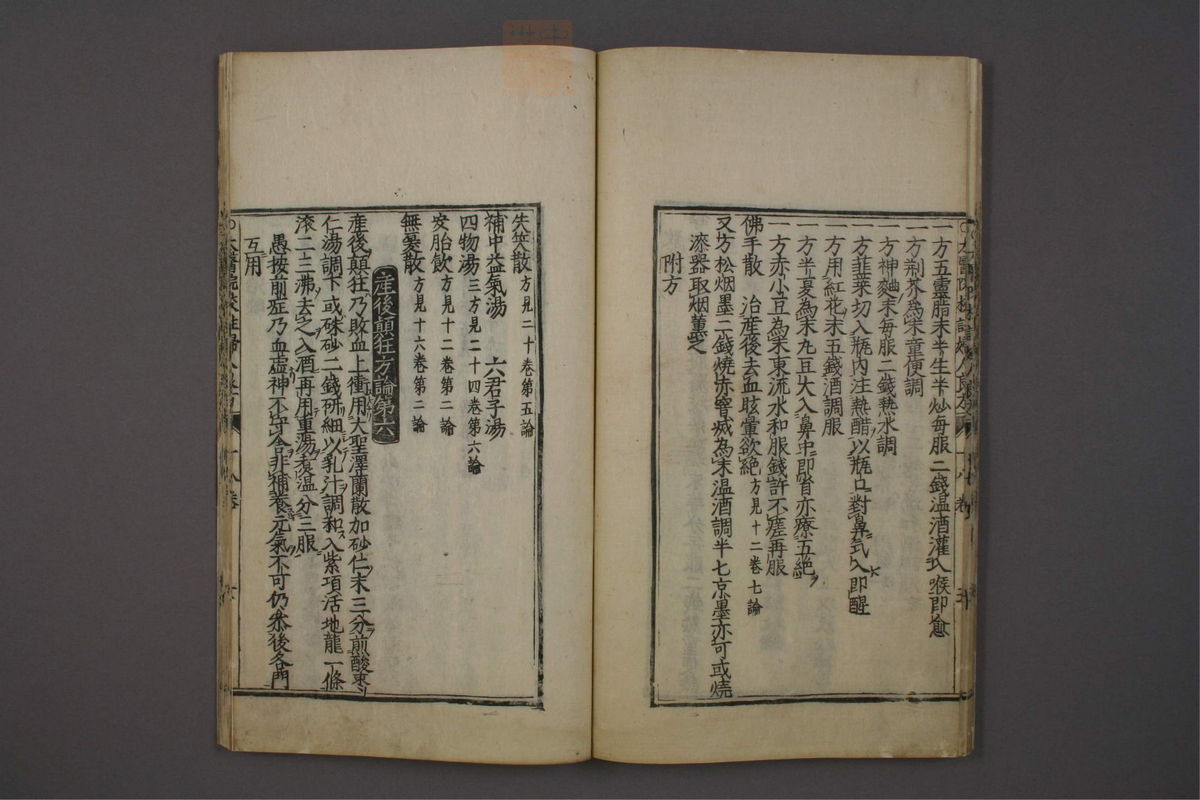 一方五靈脂末半生半炒每服二錢温酒灌入喉即愈
一方荆芥為末童便調
一方神麯末每服二錢熱水調
一方韮菜切入瓶內注熱醋以瓶口對鼻氣入即醒
一方用紅花末五錢酒調服
一方半夏為末丸豆大入鼻中即省亦療五絕
一方赤小豆為末東流水和服錢許不瘥再服
佛手散 治産後去血眩暈欲絕方見十二卷七論
又方松烟墨二錢燒赤窨烕為末温酒調半七京墨亦可或燒
漆器取烟薰之
附方
失笑散方見二十卷第五論
補中益氣湯 六君子湯
四物湯三方見二十四卷第六論
安胎飲方見十二卷第二論
無憂散方見十六卷第二論
産後顛狂方論第六
産後顛狂乃敗血上衝用大聖澤蘭散加砂仁末三分煎酸棗
仁湯調下或硃砂二錢研細以乳汁調和入紫項活地龍一條
滚二三沸去之入酒再用重湯煑温分三服
愚按前症乃血虚神不守舍非補養元氣不可仍叅後各門
互用